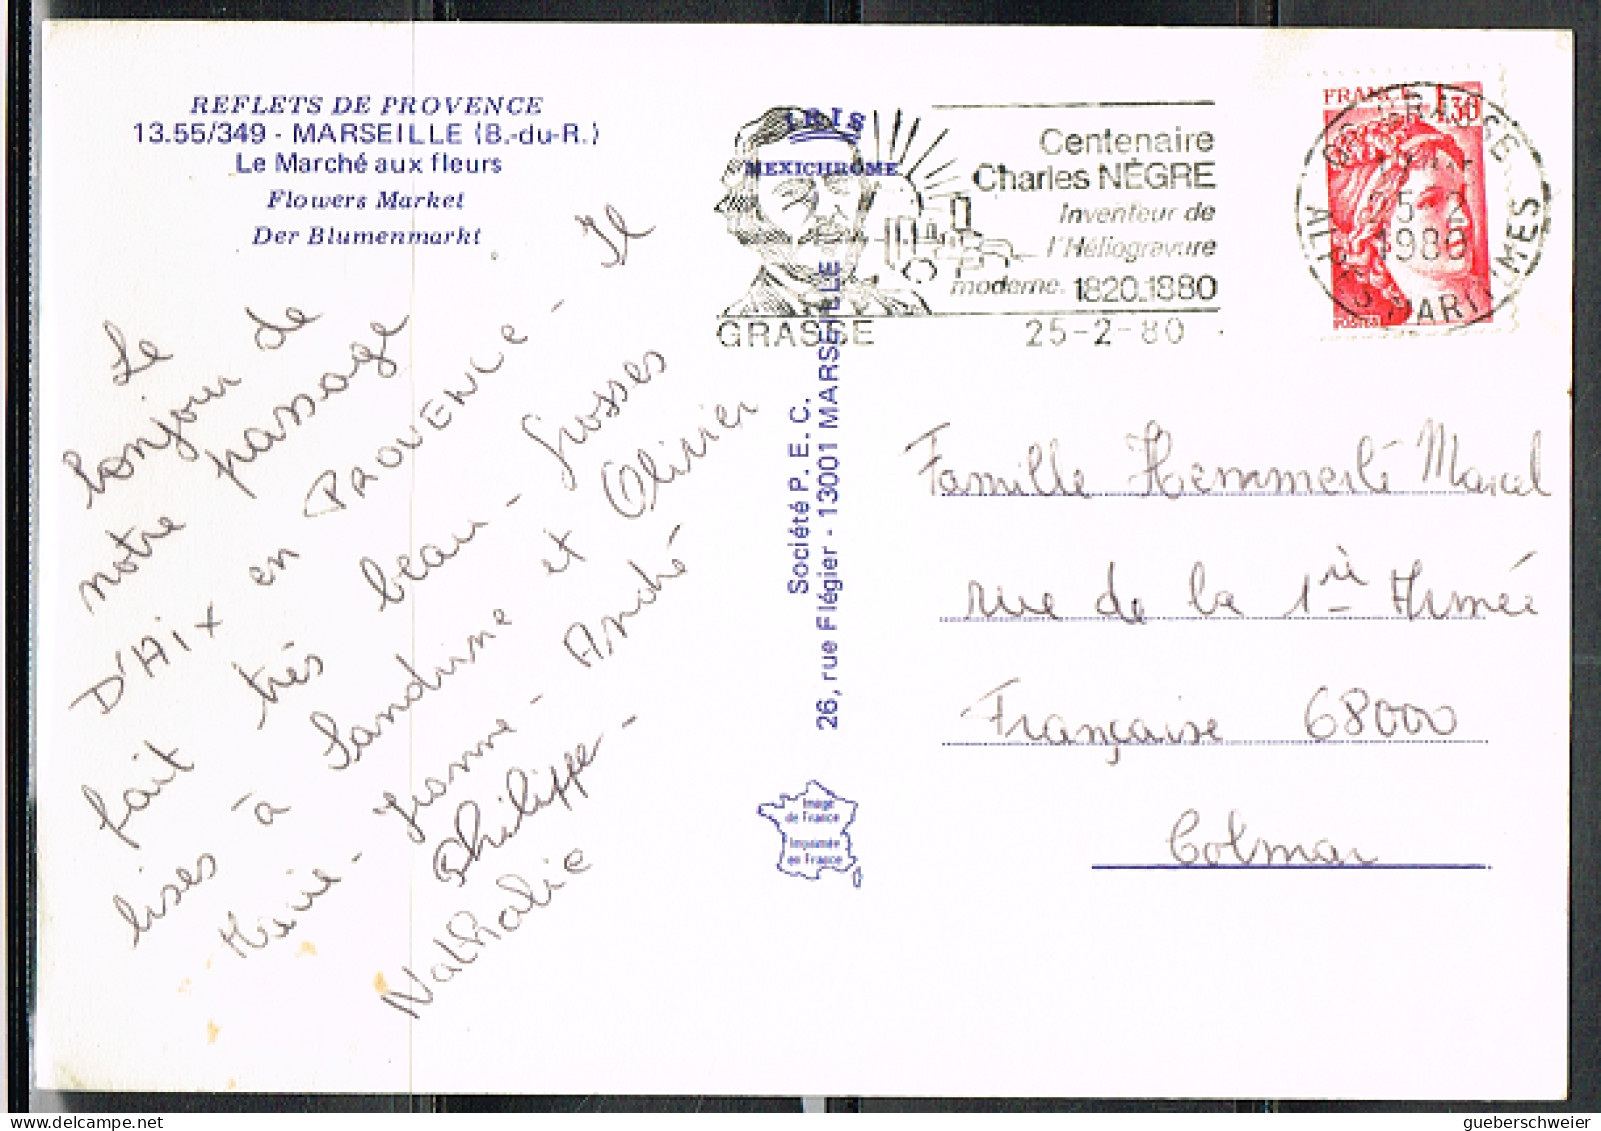 REFLETS DE PROVENCE
13.55/349 - MARSEILLE (B.-du-R.)
Le Marché aux fleurs
Flowers Market
Der Blumenmarkt
Le
bonjour de
notre passage
D'AIX en PROVENCE - Il
fait très beau - Grosses
bises à Sandrine et Olivier
Marie - Yvonne - André
Philippe -
Nathalie
IRIS
MEXICHROME
Société P. E. C.
26, rue Flégier - 13001 MARSEILLE
Image
de France
Imprimée
en France
Centenaire
Charles NÈGRE
Inventeur de
l'Héliogravure
moderne. 1820_1880
GRASSE 25-2-80
FRANCE 1,30
POSTES
GRASSE
25-2
1980
ALPES MARITIMES
Famille Hemmerlé Marcel
rue de la 1ère Armée
Française 68000
Colmar
gueberschweier